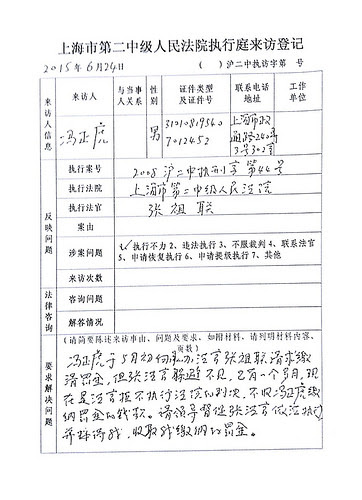 上海市第二中级人民法院执行庭来访登记
2015年6月24日 （ ）沪二中执访字第 号
来访人信息
来访人 与当事人关系 性别 证件类型及证件号 联系电话地址 工作单位
冯正虎 男 310108195407012452 上海市政通路240弄3号302室
反映问题
执行案号 2008沪二中执刑字第44号
执行法院 上海市第二中级人民法院
执行法官 张祖联
案由
涉案问题 1、执行不力 2、违法执行 3、不服裁判 4、联系法官
5、申请恢复执行 6、申请提级执行 7、其他
来访次数
法律咨询
咨询问题
解答情况
要求解决问题
（请简要陈述来访事由、问题及要求，如附材料，请列明材料内容、
页数）
冯正虎于5月初向承办法官张祖联请求缴
清罚金，但张法官躲避不见，已有一个多月，现
在是法官拒不执行法院的判决，不收冯正虎缴
纳罚金的钱款。请领导督促张法官依法执行
并接待我，收取我缴纳的罚金。